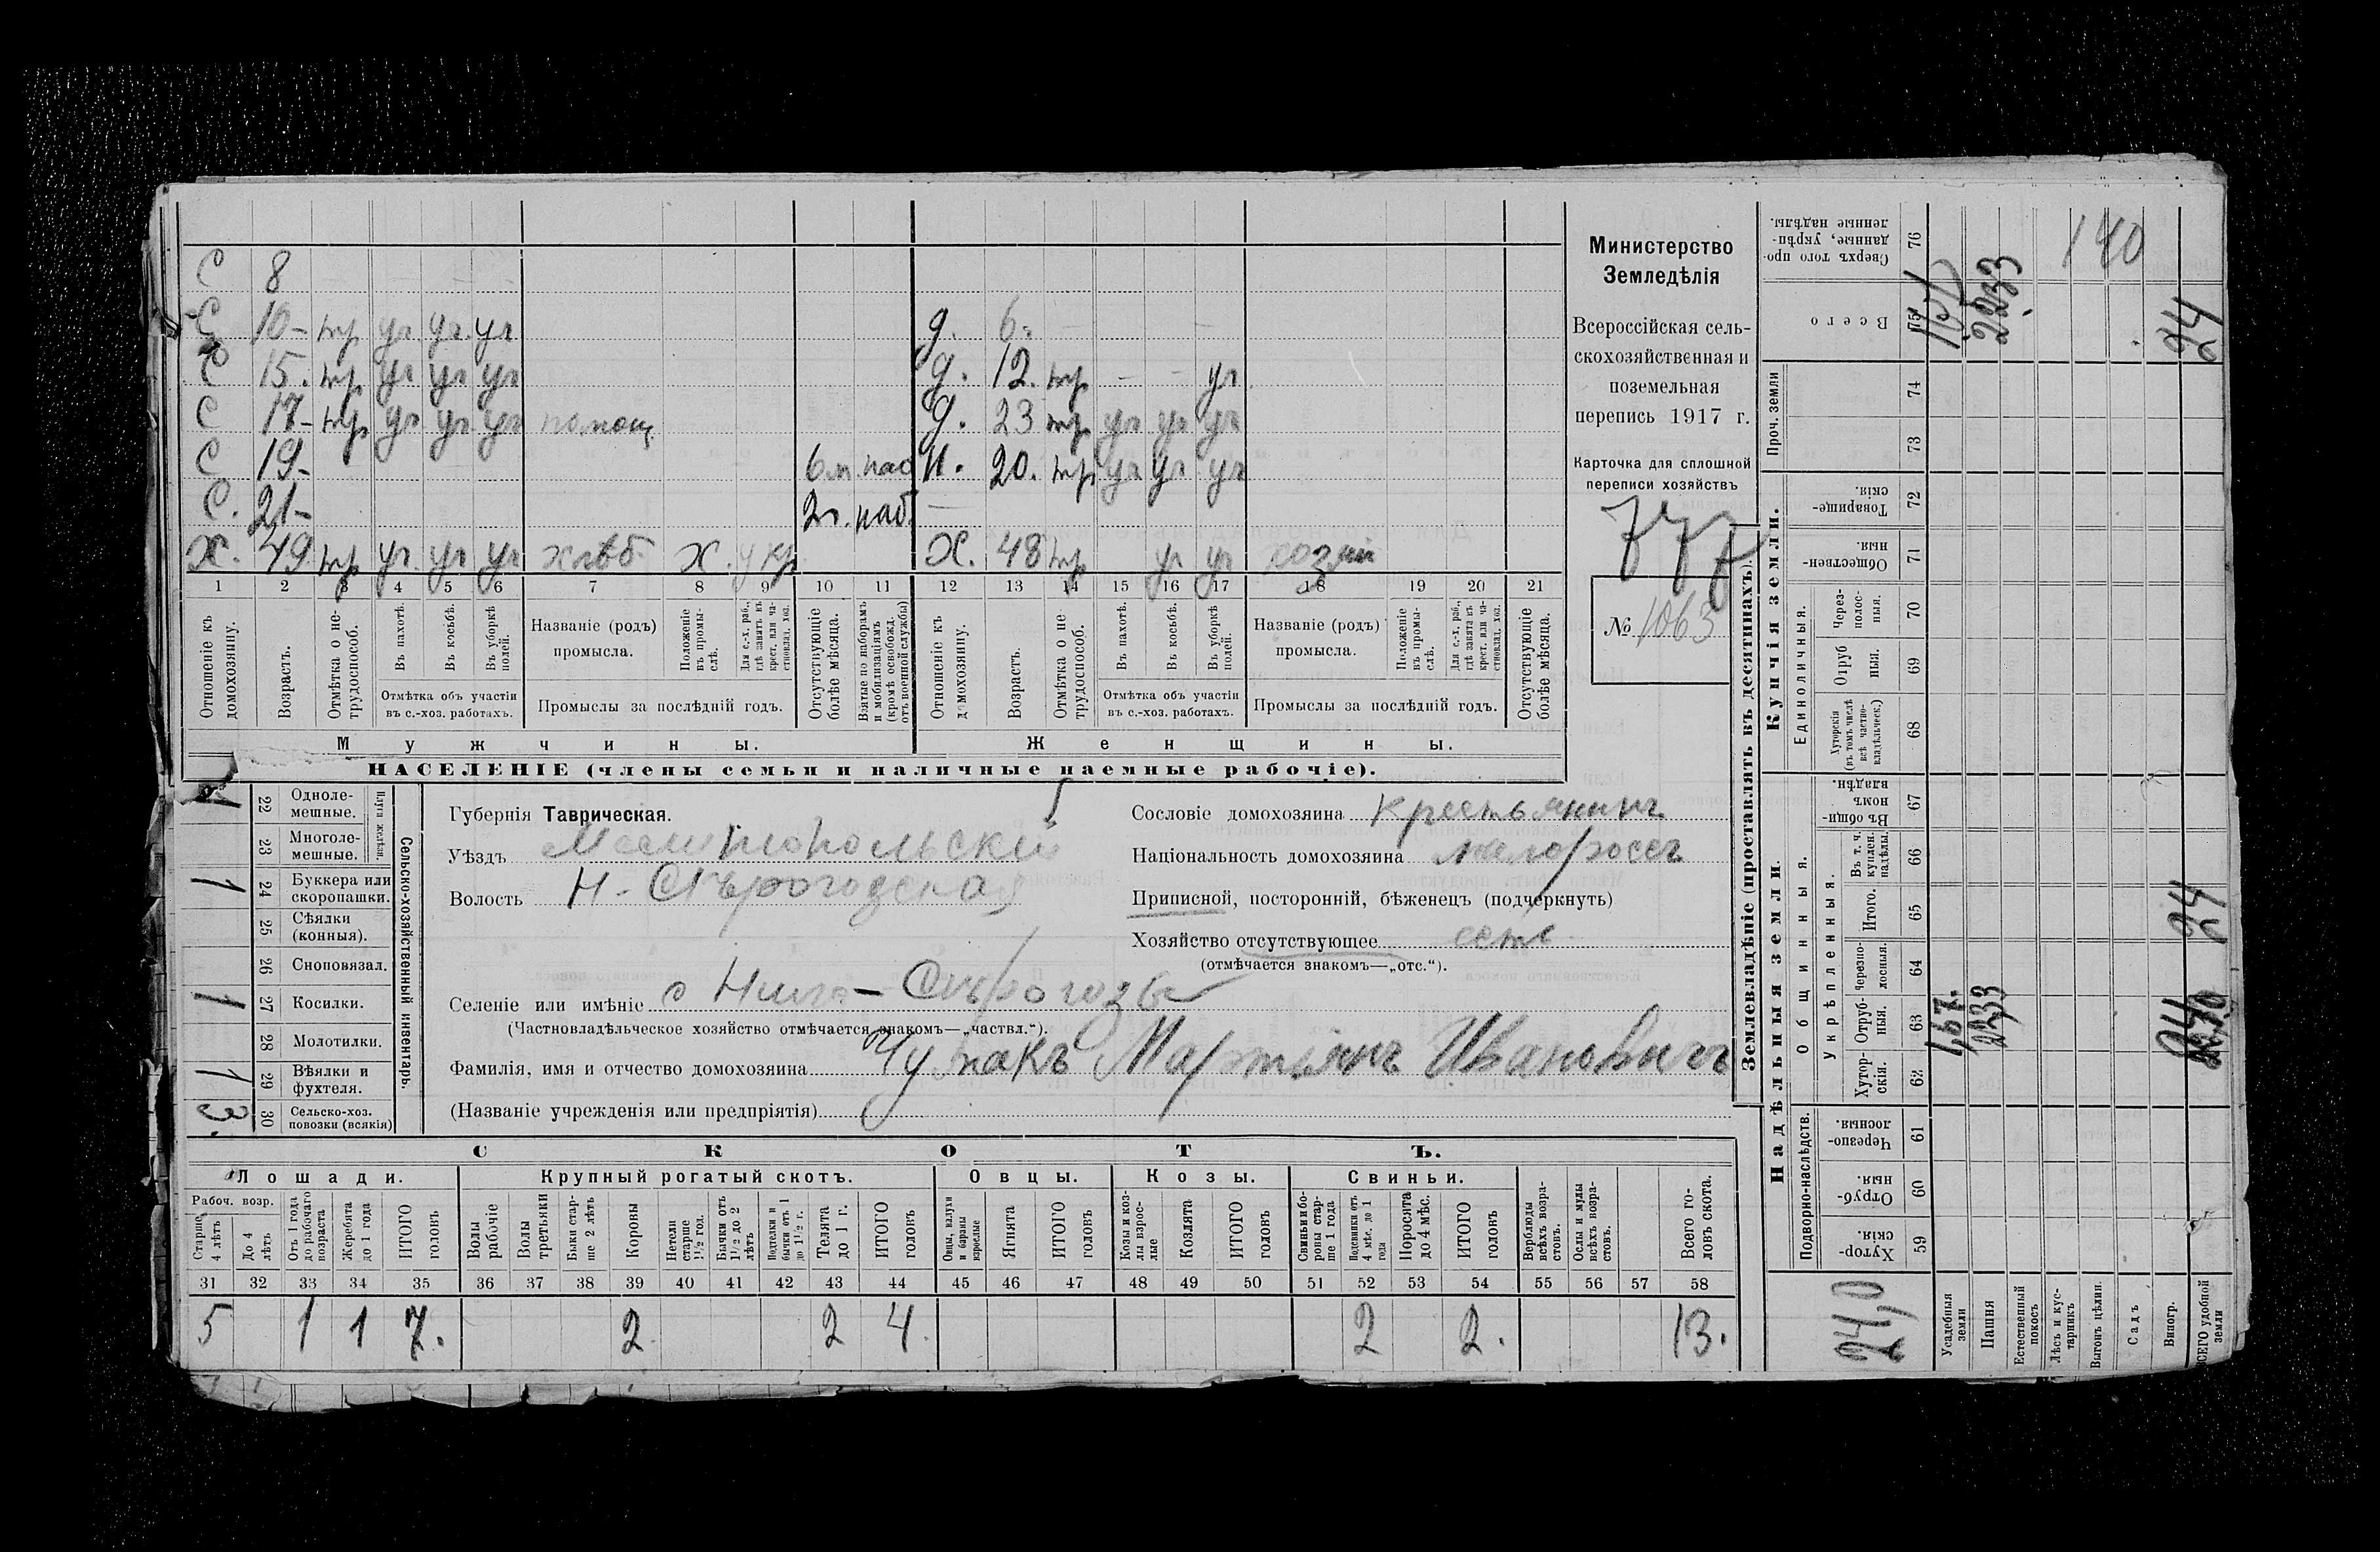 С 8
С 10- тр уч уч. уч д. 6-
С 15. тр уч уч уч д. 12. тр — — уч
С 17- тр уч уч уч помощ д. 23 тр уч уч уч
С 19- 6 м. наб Н. 20. тр уч уч уч
С. 21- 2 г. наб. —
Х. 49 тр уч. уч уч хлеб. Х. у кр Х. 48 тр уч уч
1 2 3 4 5 6 7 8 9 10 11 12 13 14 15 16 17 18 19 20 21
Отношеніе къ домохозяину.
Возрастъ.
Отмѣтка о не-трудоспособ.
Въ пахотѣ.
Въ косьбѣ.
Въ уборкѣ полей.
Отмѣтка объ участіи
въ с.-хоз. работахъ.
Названіе (родъ)
промысла.
Положеніе въ промы-слѣ.
Для с.-х. раб., гдѣ занятъ въ крест. или ча-стновлад. хоз.
Промыслы за послѣдній годъ.
Отсутствующіе болѣе мѣсяца.
Взятые по наборамъ и мобилизаціямъ (кромѣ освобожд. отъ военной службы)
Отношеніе къ домохозяину.
Возрастъ.
Отмѣтка о не-трудоспособ.
Въ пахотѣ.
Въ косьбѣ.
Въ уборкѣ полей.
Отмѣтка объ участіи
въ с.-хоз. работахъ.
Названіе (родъ)
промысла.
Положеніе въ промы-слѣ.
Для с.-х. раб., гдѣ занята въ крест. или ча-стновлад. хоз.
Промыслы за послѣдній годъ.
Отсутствующіе болѣе мѣсяца.
Мужчины. Женщины.
НАСЕЛЕНІЕ (члены семьи и наличные наемные рабочіе).
Министерство
Земледѣлія
Всероссійская сель-
скохозяйственная и
поземельная
перепись 1917 г.
Карточка для сплошной
переписи хозяйствъ
777
№ 1063
Сельско-хозяйственный инвентарь
Плуги желѣзн.
1 22 Одноле-мешные.
23 Многоле-мешные.
1 24 Буккера или скоропашки.
25 Сѣялки (конныя).
26 Сноповязал.
1 27 Косилки.
28 Молотилки.
1 29 Вѣялки и фухтеля.
3. 30 Сельско-хоз. повозки (всякія)
Губернія Таврическая.
Уѣздъ Мелитопольскій
Волость Н-Сѣрогозская
Сословіе домохозяина крестьянинъ
Національность домохозяина малоросъ
Приписной, посторонній, бѣженецъ (подчеркнуть)
Хозяйство отсутствующее
(отмѣчается знакомъ—„отс.“).
Селеніе или имѣніе с Нижн-Сѣрогозы
(Частновладѣльческое хозяйство отмѣчается знакомъ—„частвл.“).
Фамилія, имя и отчество домохозяина Чумакъ Мартынъ Ивановичъ
(Названіе учрежденія или предпріятія)
СКОТЪ.
Лошади. Крупный рогатый скотъ. Овцы. Козы. Свиньи.
Рабоч. возр.
Старше 4 лѣтъ
До 4 лѣтъ
Отъ 1 года до рабочаго возраста
Жеребята до 1 года
ИТОГО головъ
Волы рабочіе
Волы третьяки
Быки стар-ше 2 лѣтъ
Коровы
Нетели старше 1½ год.
Бычки отъ 1½ до 2 лѣтъ
Подтелки и бычки отъ 1 до 1½ г.
Телята до 1 г.
ИТОГО головъ
Овцы, валухи и бараны взрослые
Ягнята
ИТОГО головъ
Козы и коз-лы взрос-лые
Козлята
ИТОГО головъ
Свиньи и бо-ровы стар-ше 1 года
Подсвинки отъ 4 мѣс. до 1 года
Поросята до 4 мѣс.
ИТОГО головъ
Верблюды всѣхъ возра-стовъ.
Ослы и мулы всѣхъ возра-стовъ.
Всего го-ловъ скота.
31 32 33 34 35 36 37 38 39 40 41 42 43 44 45 46 47 48 49 50 51 52 53 54 55 56 57 58
5 1 1 7. 2. 2 4. 2 2. 13.
Землевладѣніе (проставлять въ десятинахъ).
Надѣльныя земли.
Купчія земли.
Проч. земли
Подворно-наслѣдств.
Общинныя.
Укрѣпленныя.
Единоличныя.
Хутор-скія. 59
Отруб-ныя. 60
Черезпо-лосныя. 61
Хутор-скія. 62
Отруб-ныя. 63
Черезпо-лосныя. 64
Итого. 65
Въ т. ч. куплен. надѣлы. 66
Въ общи-номъ владѣн. 67
Хуторскія (въ томъ числѣ всѣ частно-владѣльческ.) 68
Отруб ныя. 69
Через-полос-ныя. 70
Обществен-ныя. 71
Товарище-скія. 72
73
74
Всего 75
Сверхъ того про-данные, укрѣп-ленные надѣлы. 76
24,0
Усадебныя земли 1,67.
Пашня 2233 2233
Естественный покосъ
Лѣсъ и кус-тарникъ
Выгонъ цѣлин. 140
Садъ
Виногр. 24 24 24
ВСЕГО удобной земли